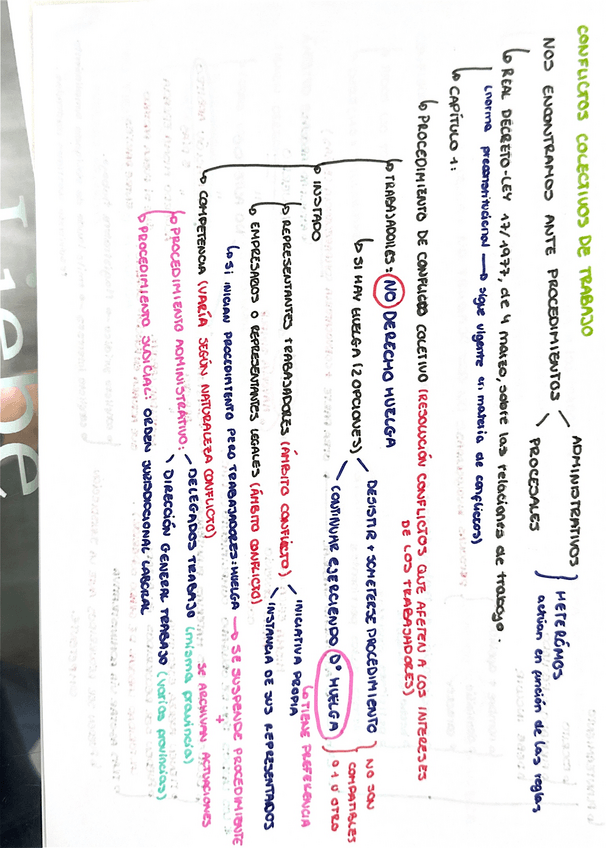 CONFLICTOS COLECTIVOS DE TRABAJO
NOS ENCONTRAMOS ANTE PROCEDIMIENTOS
ADMINISTRATIVOS
PROCESALES
HETERÓMOS
actúan en función de las reglas
↳ REAL DECRETO-LEY 17/1977, de 4 marzo, sobre las relaciones de trabajo.
(norma preconstitucional → sigue vigente en materia de conflictos)
↳ CAPÍTULO 1:
↳ PROCEDIMIENTO DE CONFLICTO COLECTIVO (RESOLUCIÓN CONFLICTOS QUE AFECTEN A LOS INTERESES
DE LOS TRABAJADORES)
↳ TRABAJADORES: NO DERECHO HUELGA
↳ SI HAY HUELGA (2 OPCIONES)
DESISTIR + SOMETERSE PROCEDIMIENTO
CONTINUAR EJERCIENDO Dº HUELGA
NO SON
COMPATIBLES
O 1 O OTRO
↳ TIENE PREFERENCIA
↳ INSTADO
↳ REPRESENTANTES TRABAJADORES (ÁMBITO CONFLICTO)
INICIATIVA PROPIA
INSTANCIA DE SUS REPRESENTADOS
↳ EMPRESARIOS O REPRESENTANTES LEGALES (ÁMBITO CONFLICTO)
↳ SI INICIAN PROCEDIMIENTO PERO TRABAJADORES: HUELGA → SE SUSPENDE PROCEDIMIENTO
+
SE ARCHIVAN ACTUACIONES
↳ COMPETENCIA (VARÍA SEGÚN NATURALEZA CONFLICTO)
↳ PROCEDIMIENTO ADMINISTRATIVO:
DELEGADOS TRABAJO (misma provincia)
DIRECCIÓN GENERAL TRABAJO (varias provincias)
↳ PROCEDIMIENTO JUDICIAL: ORDEN JURISDICCIONAL LABORAL